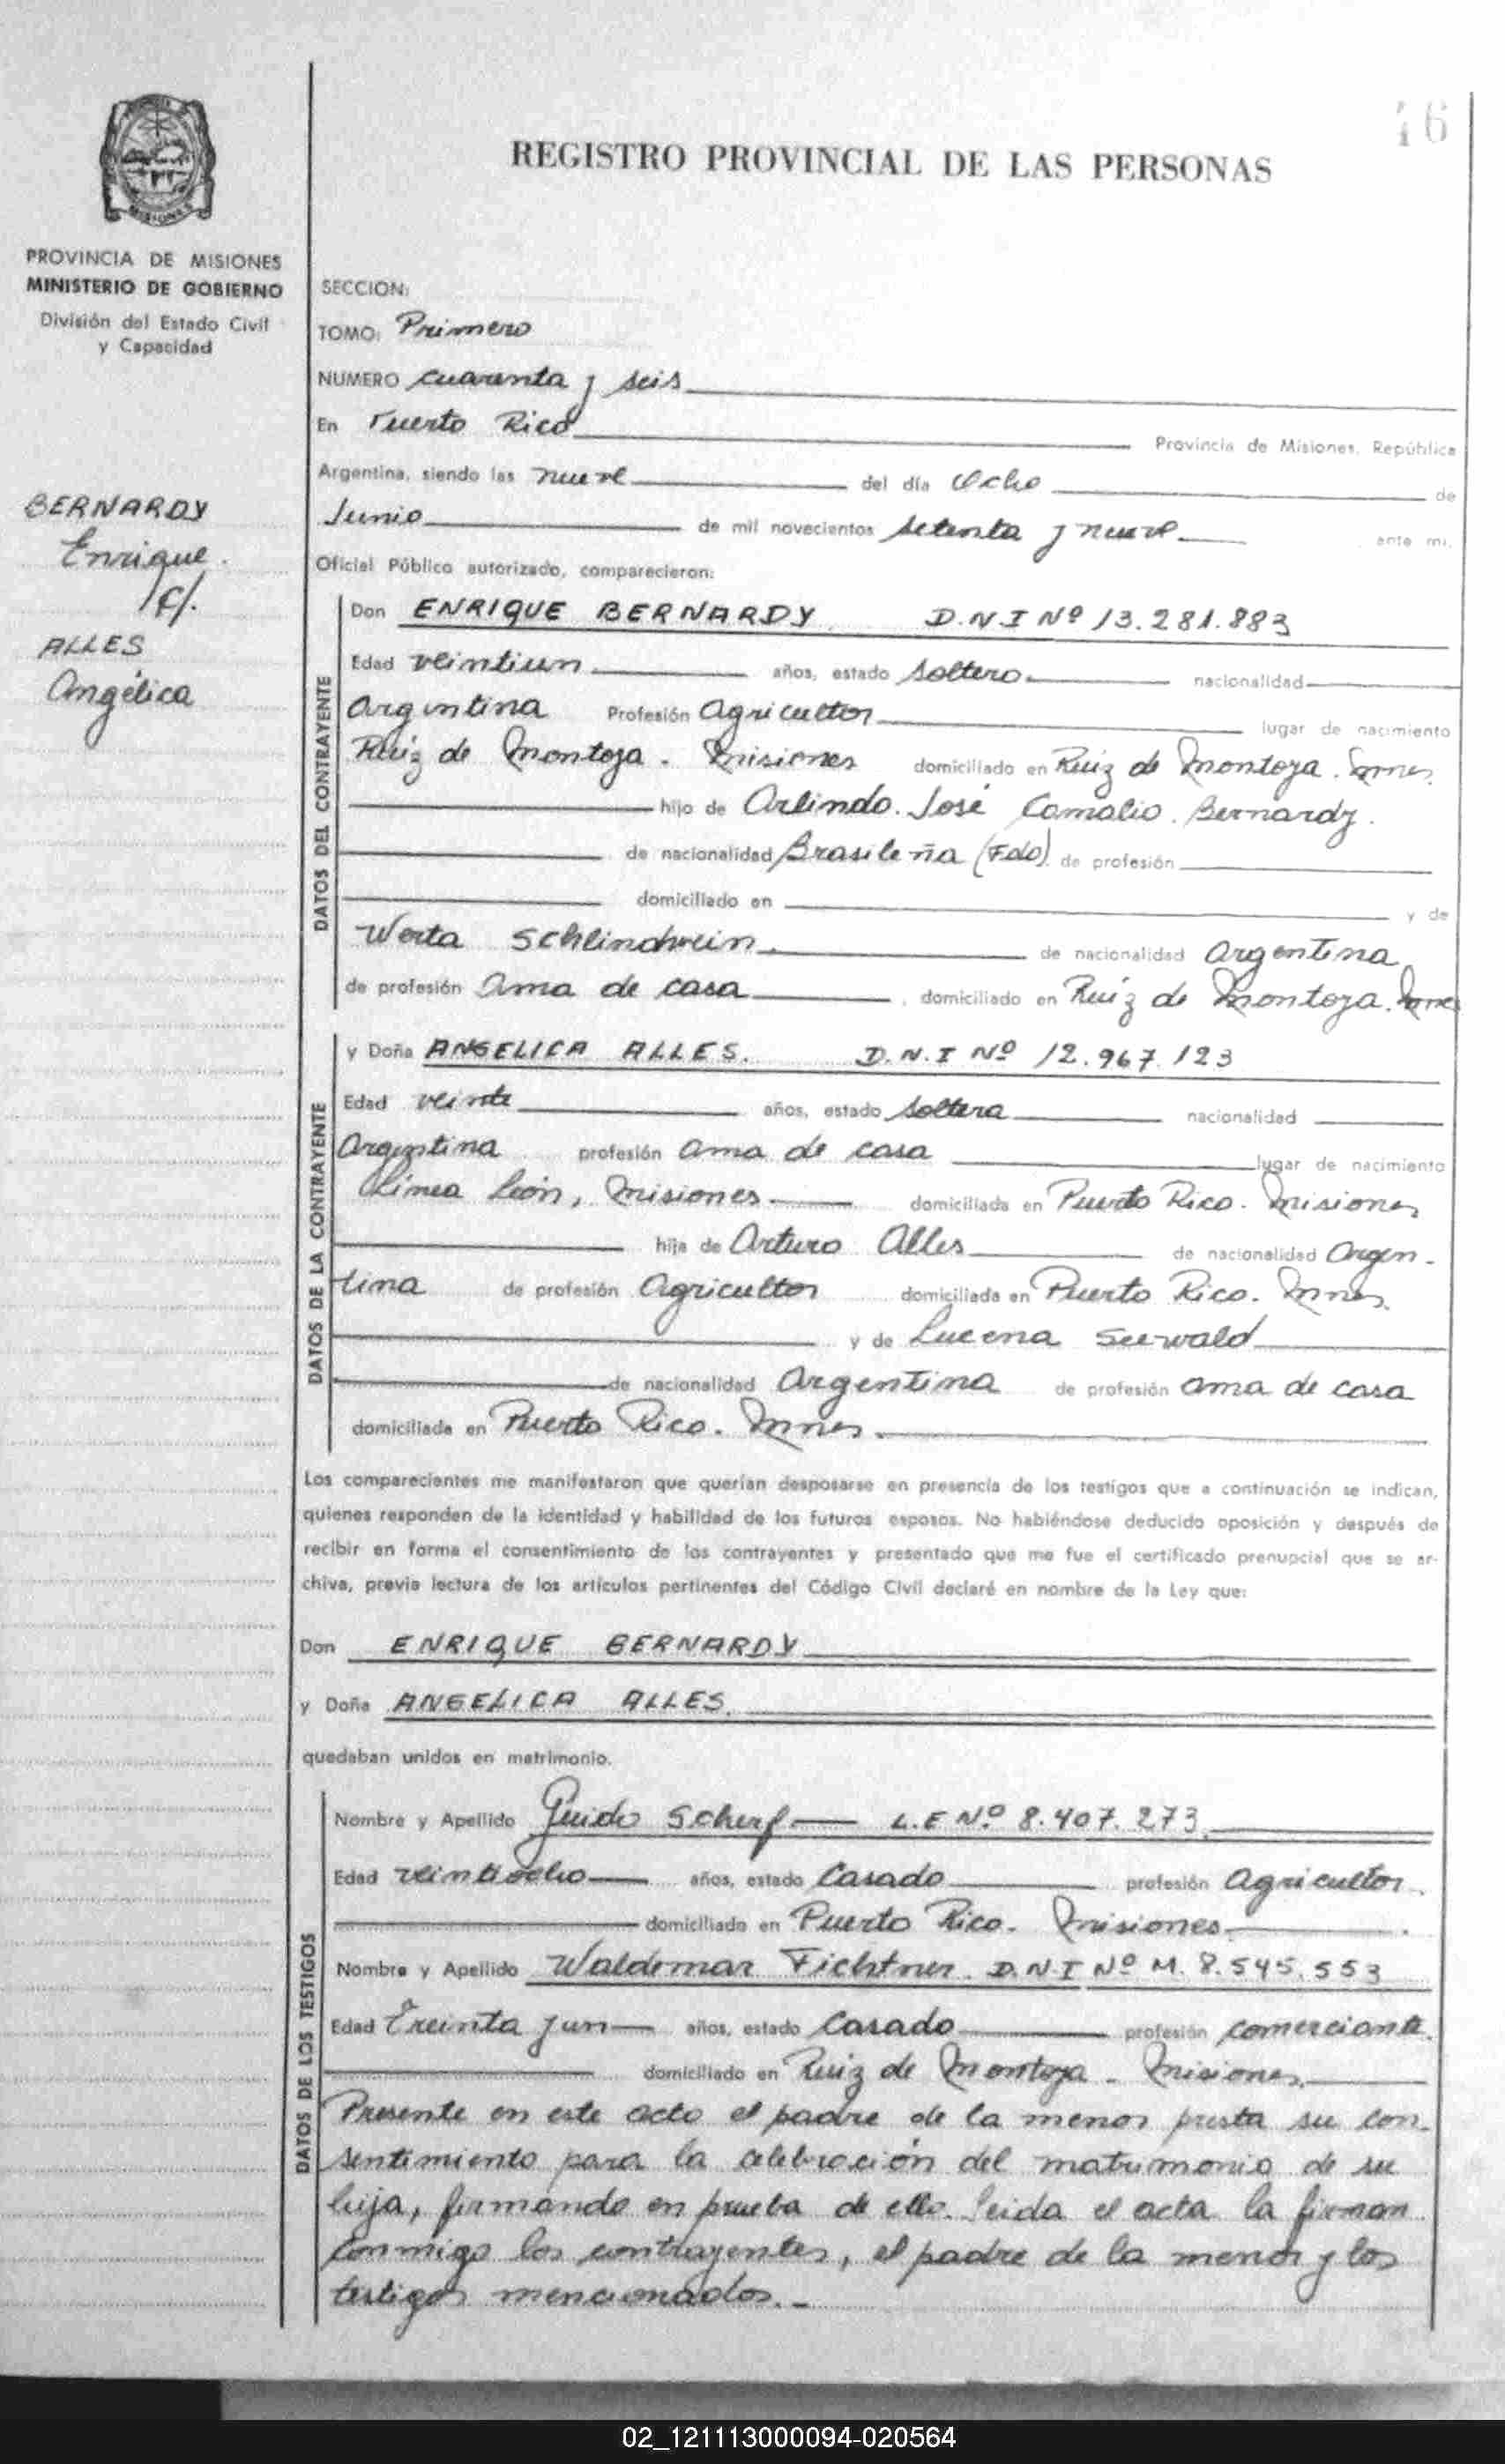 46
REGISTRO PROVINCIAL DE LAS PERSONAS
MISIONES
PROVINCIA DE MISIONES
MINISTERIO DE GOBIERNO
División del Estado Civil
y Capacidad
BERNARDY
Enrique
c/.
ALLES
Angélica
SECCION:
TOMO: Primero
NUMERO cuarenta y seis
En Puerto Rico Provincia de Misiones, República
Argentina, siendo las nueve del día Ocho de
Junio de mil novecientos setenta y nueve ante mi,
Oficial Público autorizado, comparecieron:
DATOS DEL CONTRAYENTE
Don ENRIQUE BERNARDY D.N.I Nº 13.281.883
Edad veintiun años, estado soltero nacionalidad
argentina Profesión agricultor lugar de nacimiento
Ruiz de Montoya. Misiones domiciliado en Ruiz de Montoya. Mnes.
hijo de Arlindo José Camalio Bernardy.
de nacionalidad Brasileña (Fdo) de profesión
domiciliado en y de
Werta Schlindwein de nacionalidad argentina
de profesión ama de casa domiciliado en Ruiz de Montoya. Mnes
DATOS DE LA CONTRAYENTE
y Doña ANGELICA ALLES. D.N.I Nº 12.967.123
Edad veinte años, estado soltera nacionalidad
Argentina profesión ama de casa lugar de nacimiento
Línea León, Misiones domiciliada en Puerto Rico. Misiones
hija de Arturo Alles de nacionalidad Argen-
tina de profesión agricultor domiciliada en Puerto Rico. Mnes.
y de Lucena Seewald
de nacionalidad Argentina de profesión ama de casa
domiciliada en Puerto Rico. Mnes.
Los comparecientes me manifestaron que querían desposarse en presencia de los testigos que a continuación se indican,
quienes responden de la identidad y habilidad de los futuros esposos. No habiéndose deducido oposición y después de
recibir en forma el consentimiento de los contrayentes y presentado que me fue el certificado prenupcial que se ar-
chiva, previa lectura de los artículos pertinentes del Código Civil declaré en nombre de la Ley que:
Don ENRIQUE BERNARDY
y Doña ANGELICA ALLES.
quedaban unidos en matrimonio.
DATOS DE LOS TESTIGOS
Nombre y Apellido Guido Scherf L.E Nº 8.407.273
Edad veintiocho años, estado Casado profesión agricultor.
domiciliado en Puerto Rico. Misiones.
Nombre y Apellido Waldemar Fichtner D.N.I Nº M. 8.545.553
Edad Treinta y un años, estado Casado profesión comerciante.
domiciliado en Ruiz de Montoya - Misiones.
Presente en este acto el padre de la menor presta su con-
sentimiento para la celebración del matrimonio de su
hija, firmando en prueba de ello. Leida el acta la firman
conmigo los contrayentes, el padre de la menor y los
testigos mencionados.-
02_121113000094-020564